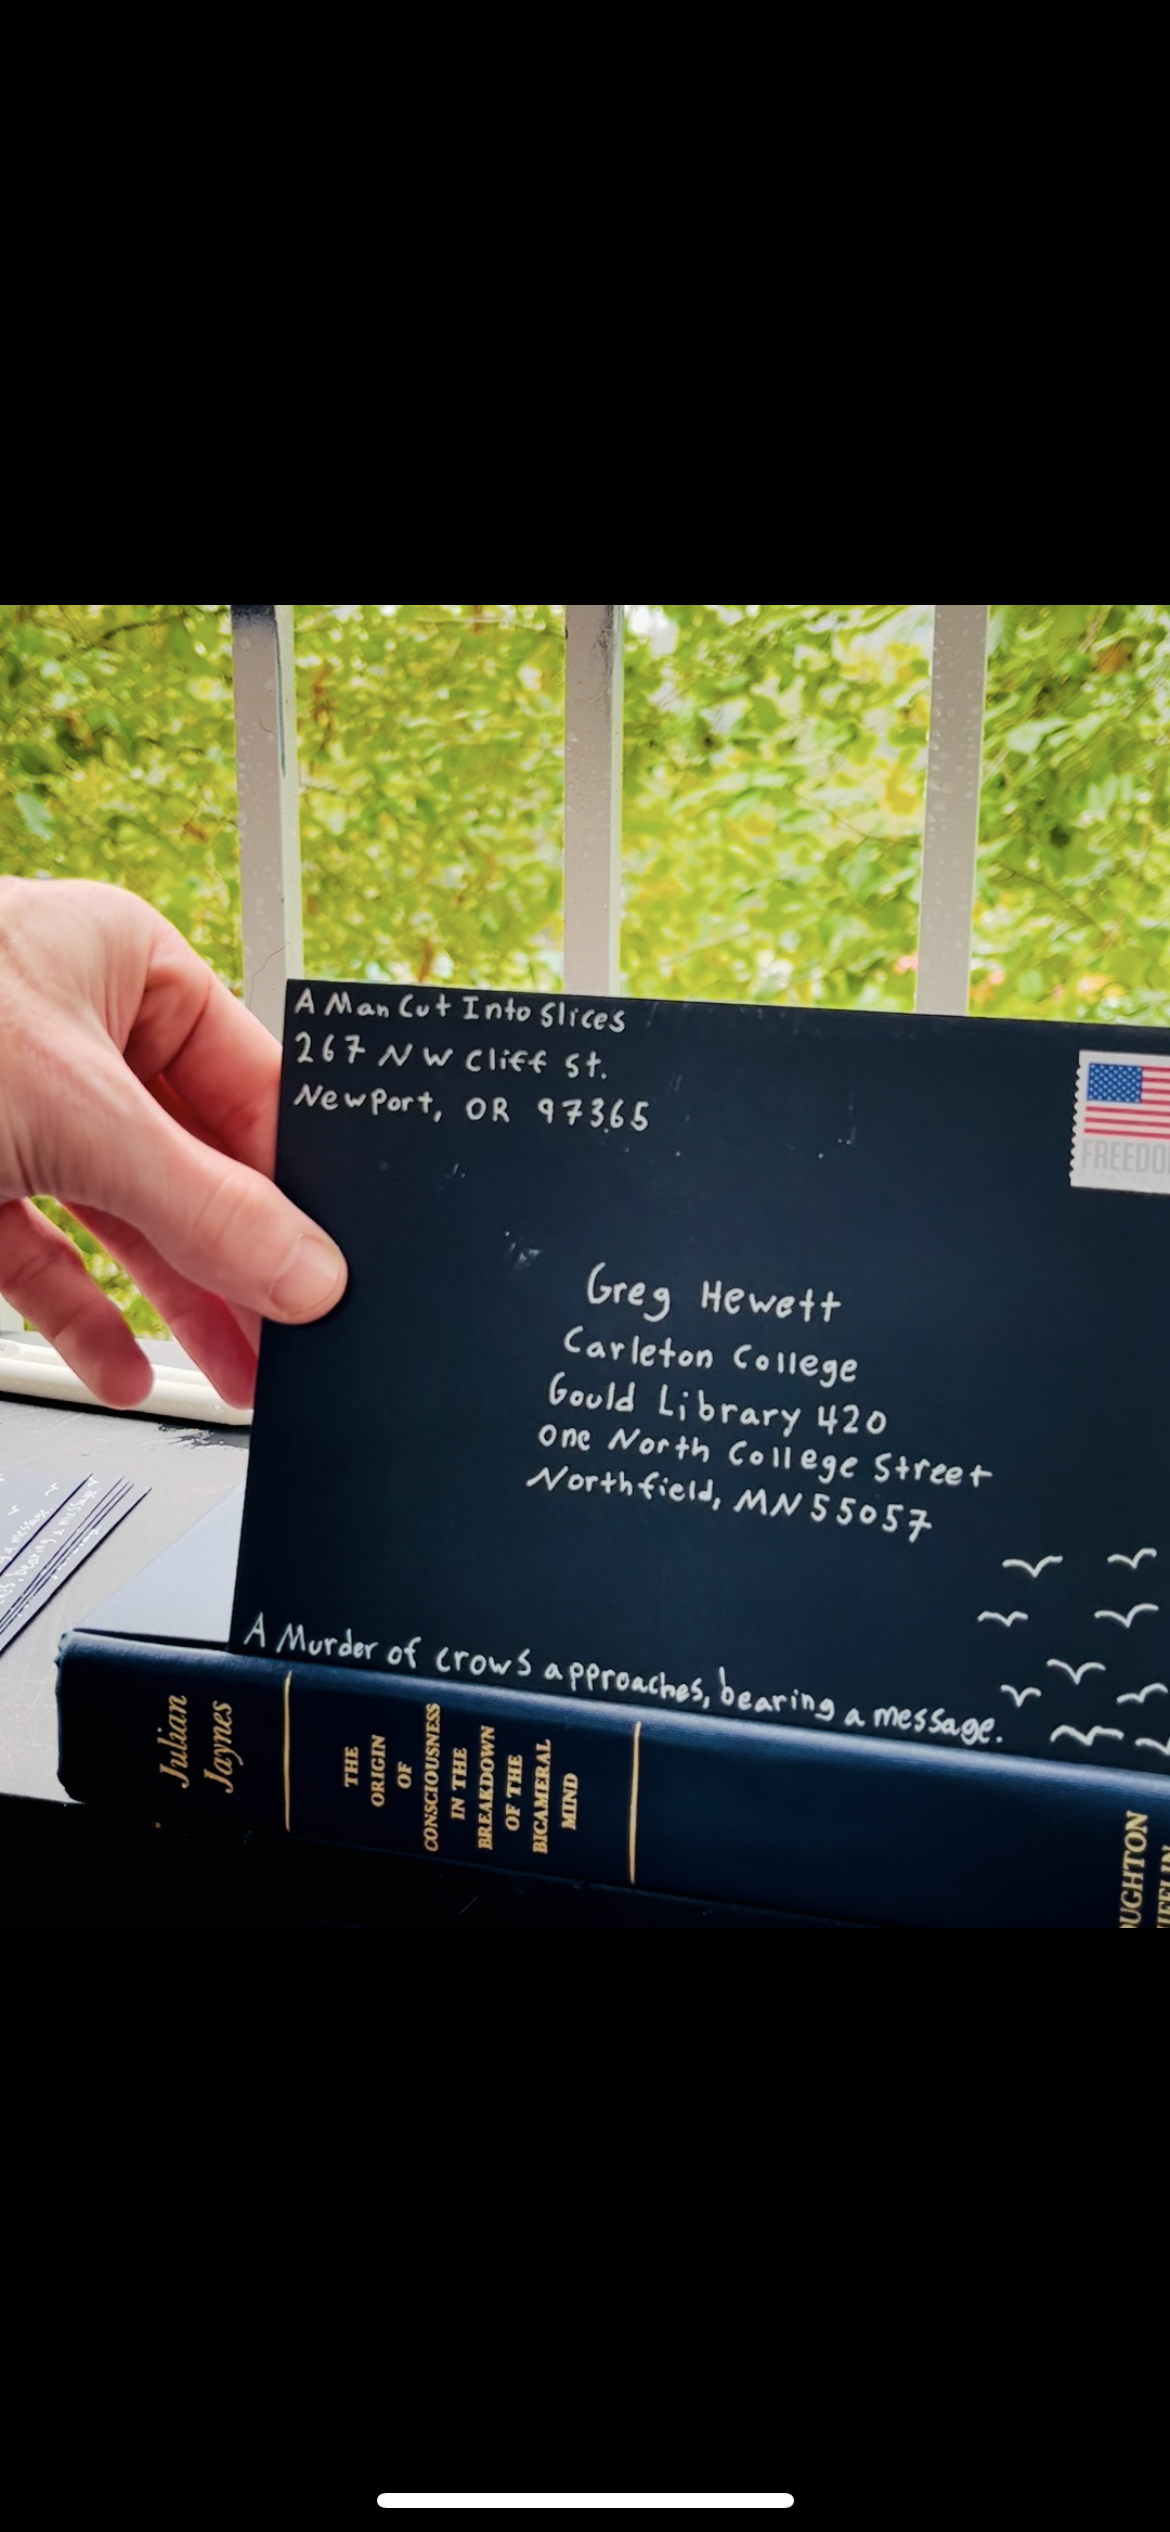 A Man Cut Into Slices
267 NW Cliff St.
Newport, OR 97365
FREEDO
Greg Hewett
Carleton College
Gould Library 420
One North College Street
Northfield, MN 55057
A Murder of crows approaches, bearing a message.
a message
bearing a message
Julian
Jaynes
THE
ORIGIN
OF
CONSCIOUSNESS
IN THE
BREAKDOWN
OF THE
BICAMERAL
MIND
OUGHTON